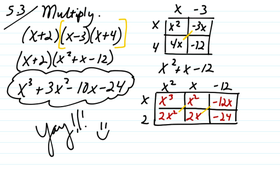 5.3) Multiply.
(x+2)(x-3)(x+4)
(x+2)(x²+x-12)
x³+3x²-10x-24
Yay!!!
x -3
x x² -3x
4 4x -12
x²+x-12
x² x -12
x x³ x² -12x
2 2x² 2x -24